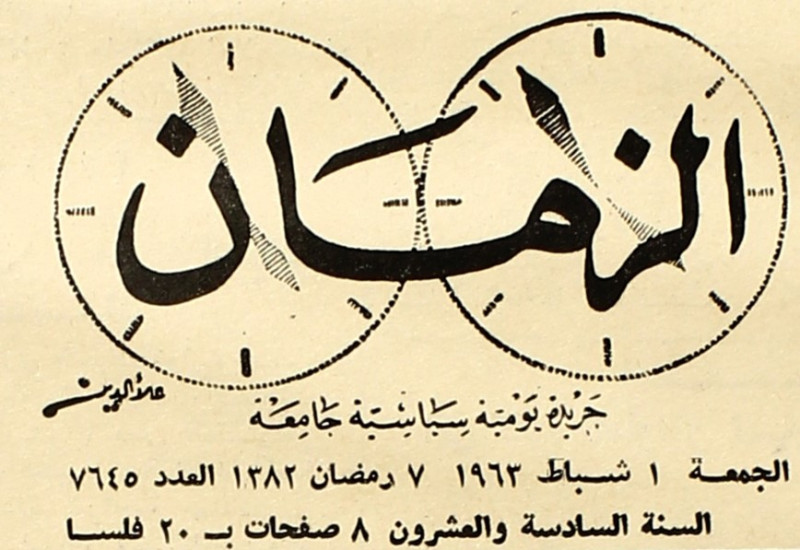 الزمان
علاء الدين
جريدة يومية سياسية جامعة
الجمعة ١ شباط ١٩٦٣ ٧ رمضان ١٣٨٢ العدد ٧٦٤٥
السنة السادسة والعشرون ٨ صفحات بـ ٢٠ فلسا